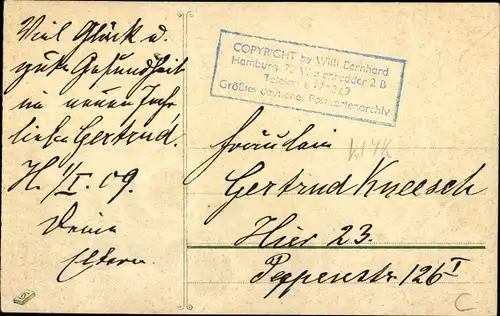 Viel Glück u.
gute Gesundheit
im neuen Jahr
liebe Gertrud.
H. 1/I. 09.
Deine
Eltern.
COPYRIGHT by Willi Bernhard
Hamburg 72 2 B
Telefon 6
Größtes deutsches Postkartenarchiv
Fräulein
Gertrud Kneesch
Hier 23.
126 I